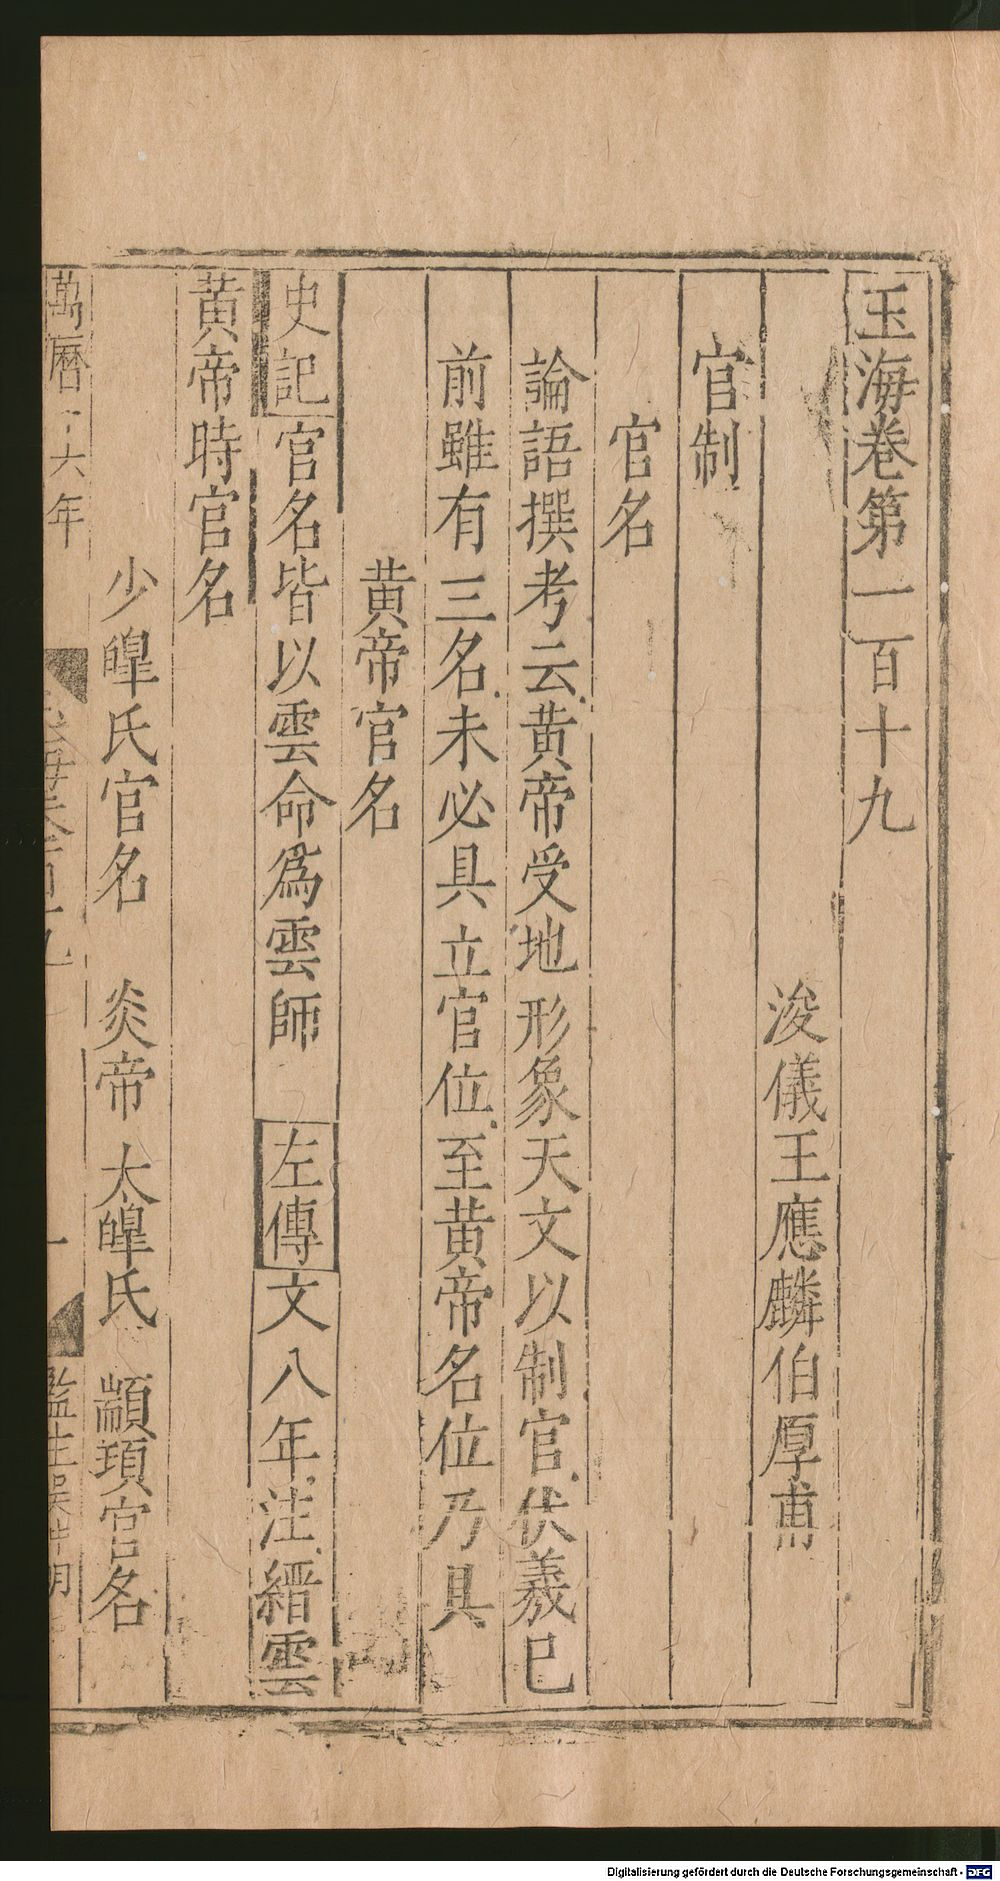 玉海卷第一百十九
浚儀王應麟伯厚甫
官制
官名
論語撰考云黃帝受地形象天文以制官伏羲已
前雖有三名未必具立官位至黃帝名位乃具
黃帝官名
史記官名皆以雲命爲雲師 左傳文八年注縉雲
黃帝時官名
少皥氏官名 炎帝 太皥氏 顓頊官名
萬曆十六年
一
Digitalisierung gefördert durch die Deutsche Forschungsgemeinschaft - DFG